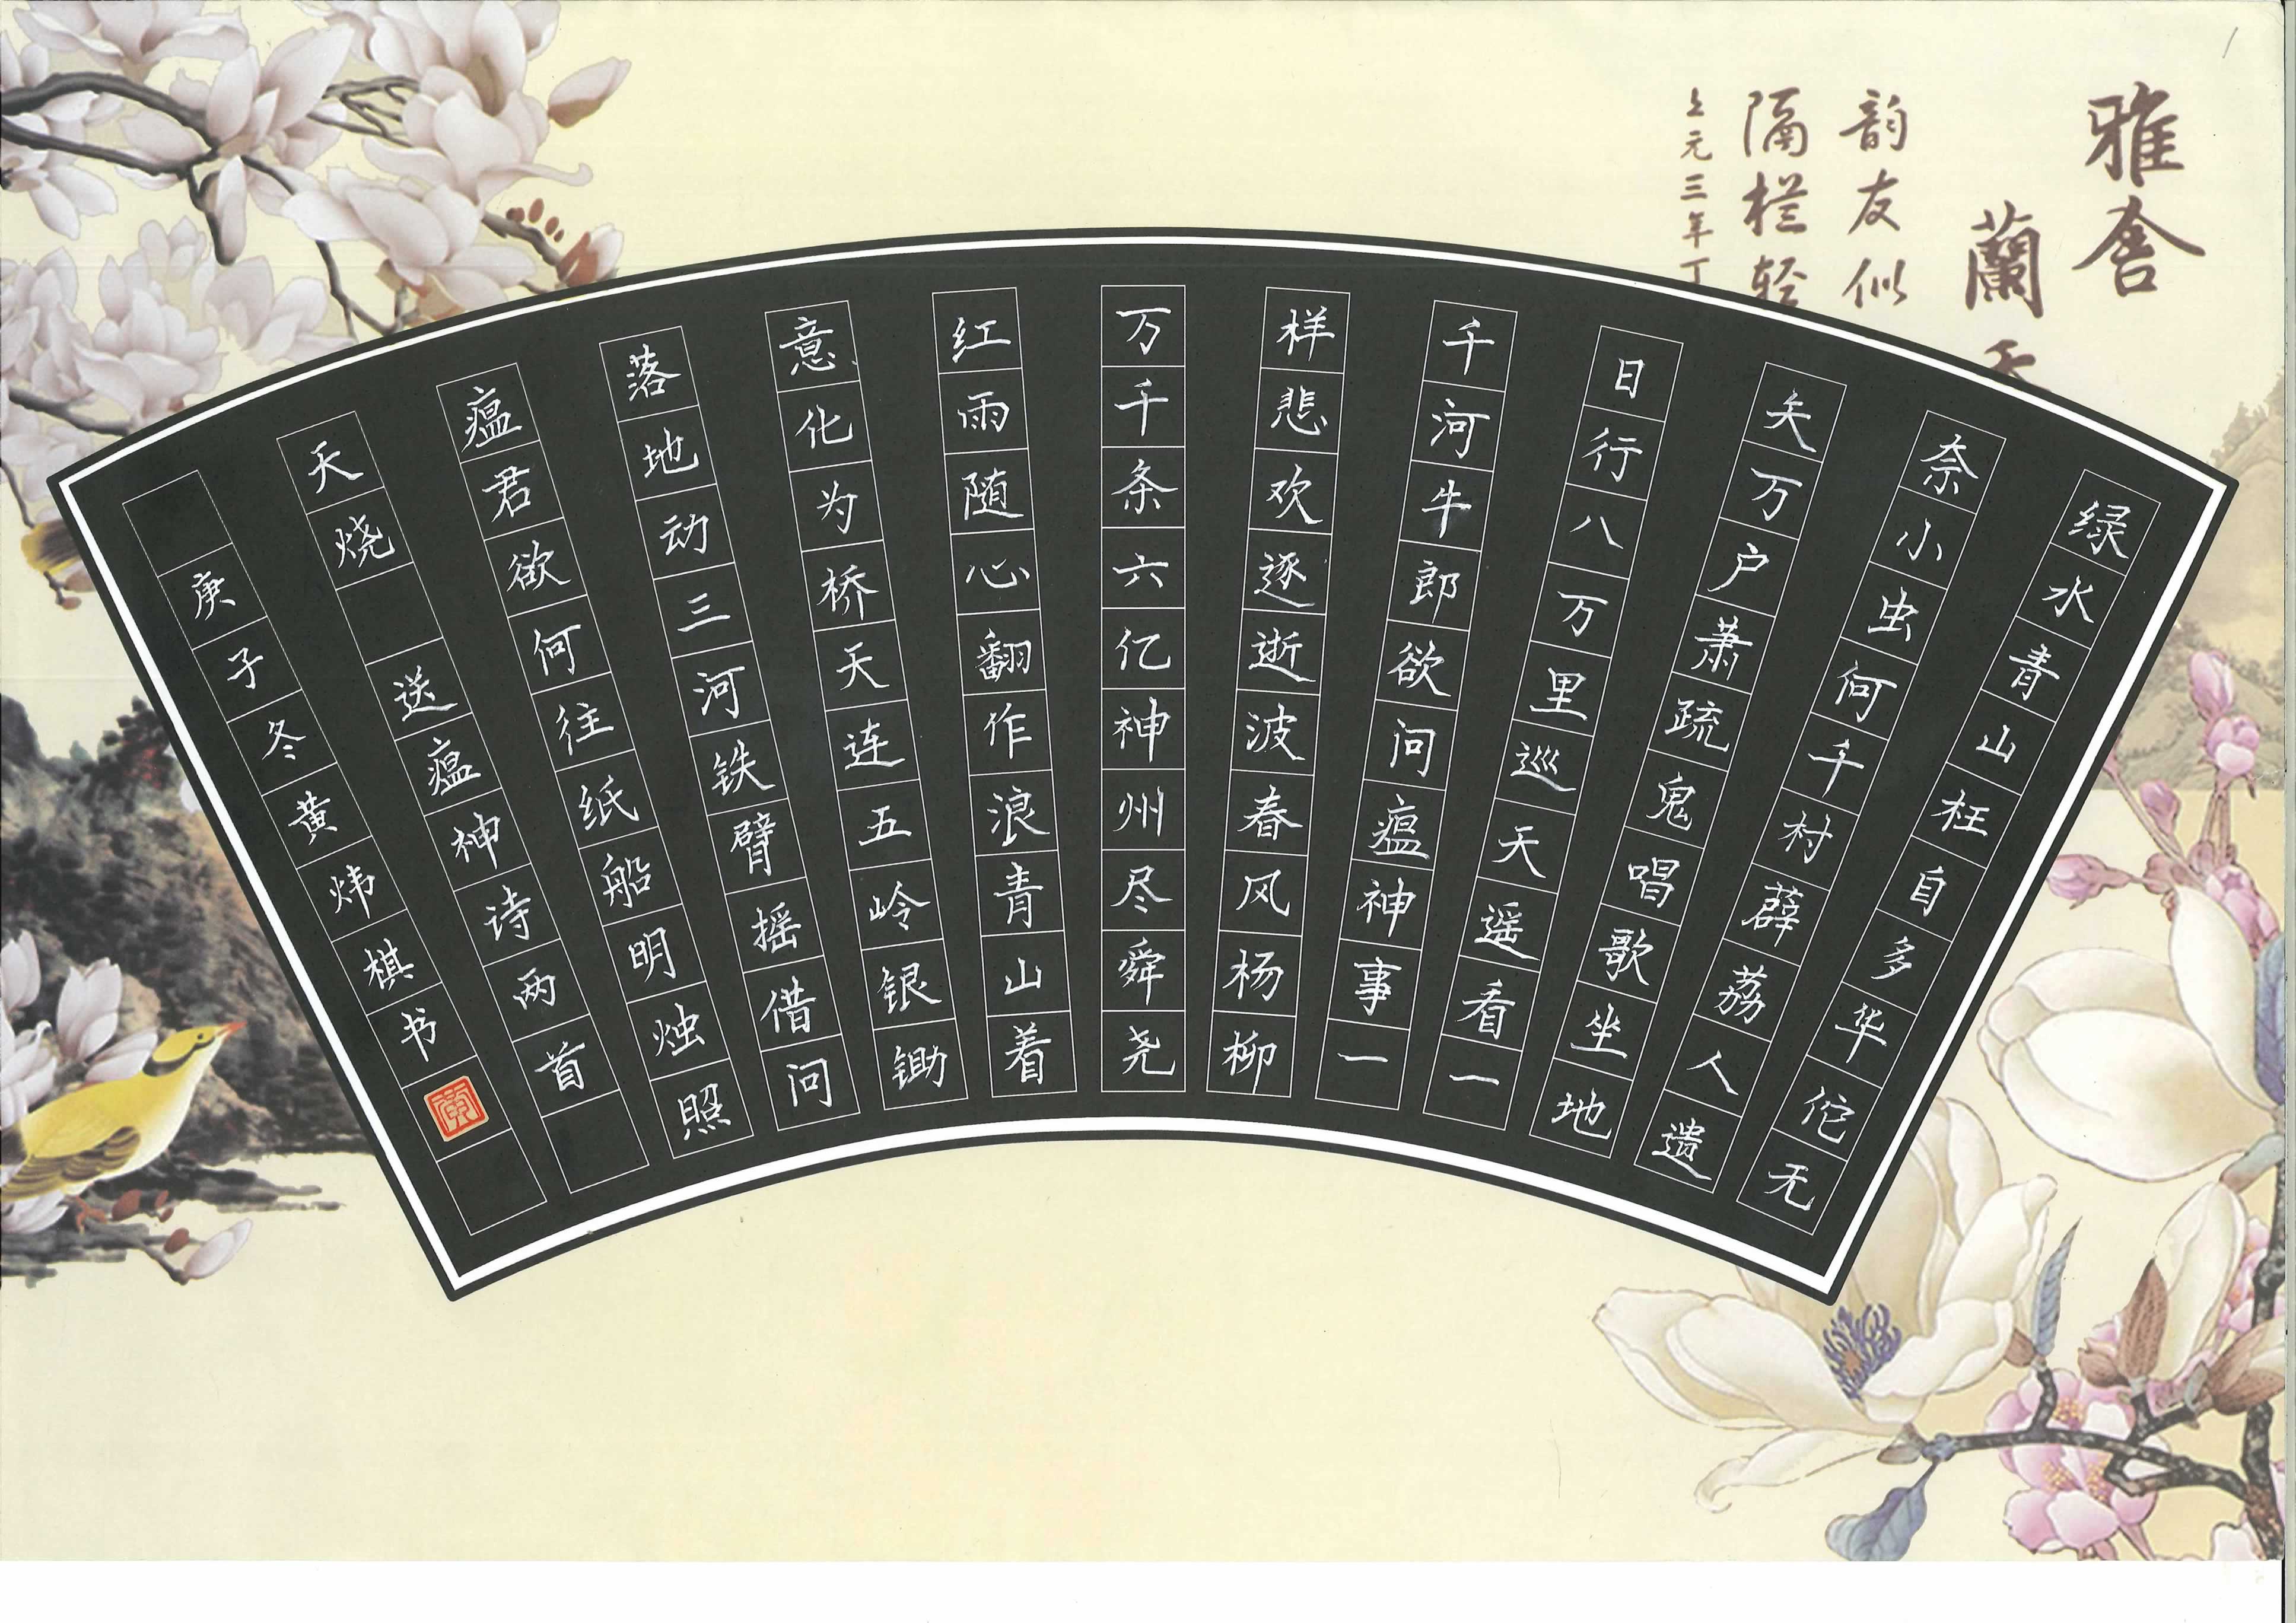 雅舍
蘭
韵友似
隔栏轻
上元三年丁
绿水青山枉自多华佗无
奈小虫何千村薜荔人遗
矢万户萧疏鬼唱歌坐地
日行八万里巡天遥看一
千河牛郎欲问瘟神事一
样悲欢逐逝波春风杨柳
万千条六亿神州尽舜尧
红雨随心翻作浪青山着
意化为桥天连五岭银锄
落地动三河铁臂摇借问
瘟君欲何往纸船明烛照
天烧 送瘟神诗两首
庚子冬黄炜棋书